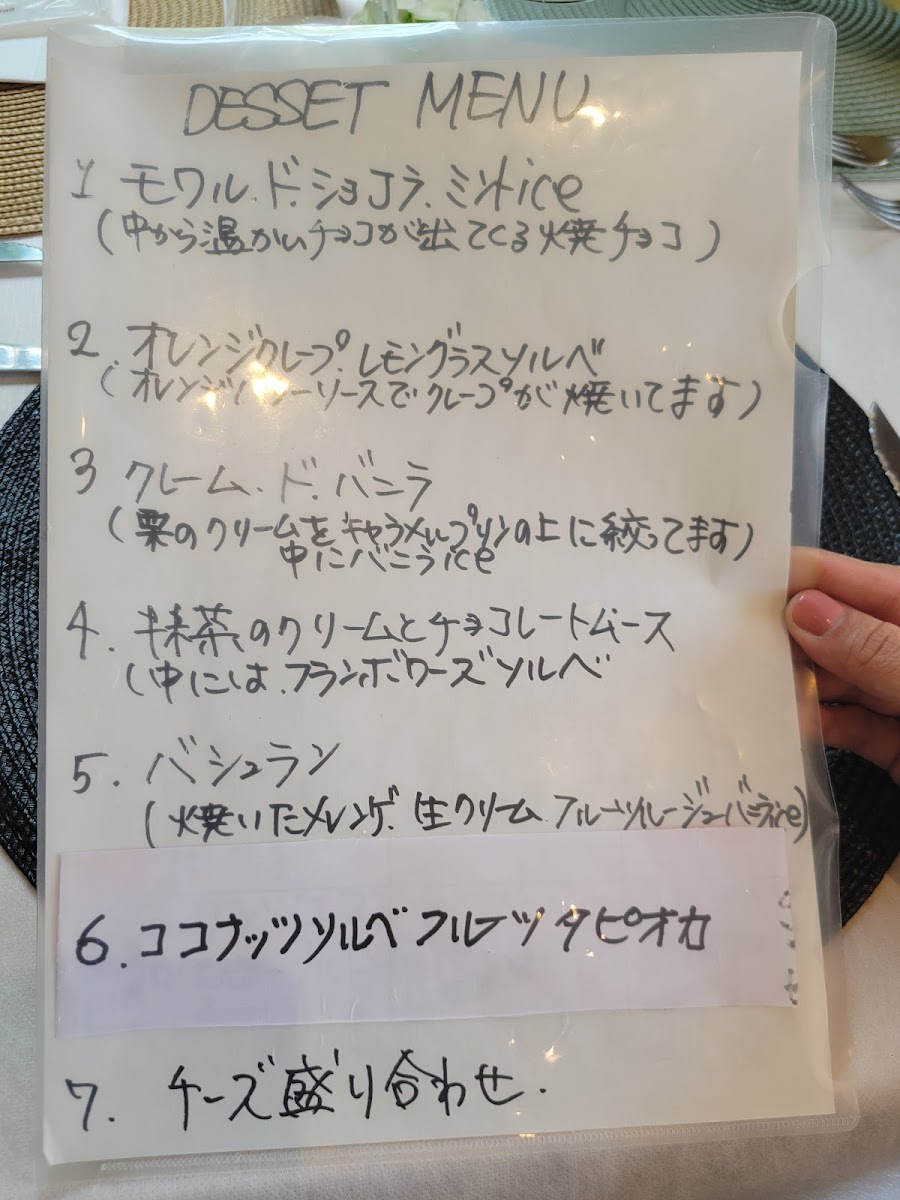 DESSET MENU
1 モワル.ド.ショコラ.ミントice
(中から温かいチョコが出てくる焼チョコ)
2. オレンジクレープ.レモングラスソルベ
(オレンジバターソースでクレープが焼いてます)
3 クレーム.ド.バニラ
(栗のクリームをキャラメルプリンの上に絞ってます)
中にバニラice
4. 抹茶のクリームとチョコレートムース
(中には.フランボワーズソルベ
5. バシュラン
(焼いたメレンゲ.生クリーム.フルーツルージュ.バニラice)
6. ココナッツソルベ フルーツ タピオカ
7. チーズ盛り合わせ.